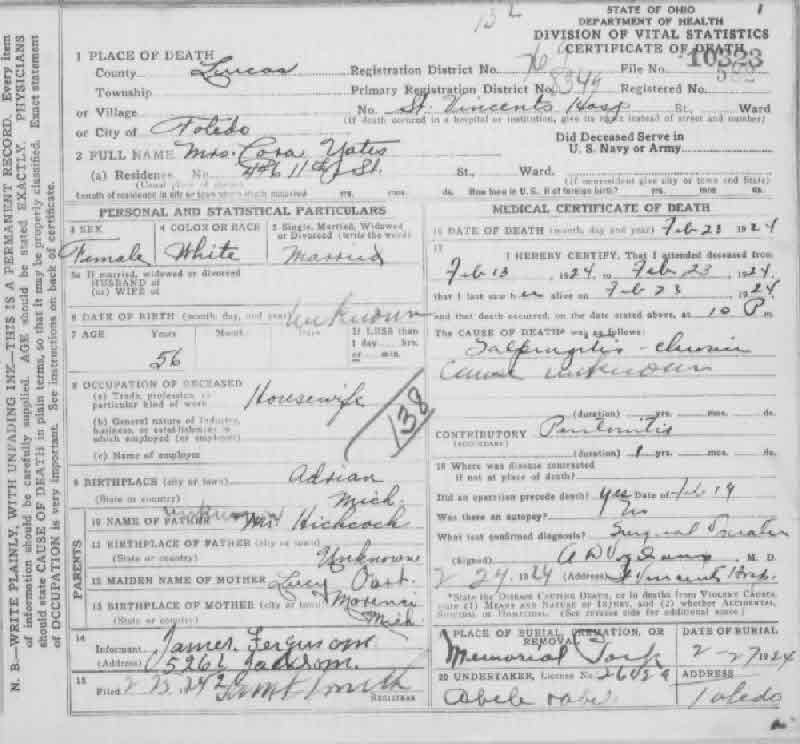 STATE OF OHIO
DEPARTMENT OF HEALTH
DIVISION OF VITAL STATISTICS
CERTIFICATE OF DEATH
1 PLACE OF DEATH
County Lucas Registration District No. File No. 10323
Township Primary Registration District No. 8349 Registered No.
or Village No. St. Vincents Hosp St., Ward
(If death occured in a hospital or institution, give its name instead of street and number)
or City of Toledo
Did Deceased Serve in
U. S. Navy or Army
2 FULL NAME Mrs. Cora Yates
(a) Residence. No. 426 11th St. St., Ward.
(Usual place of abode) (If nonresident give city or town and State)
Length of residence in city or town where death occurred yrs. mos. ds. How long in U. S. if of foreign birth? yrs. mos. ds.
PERSONAL AND STATISTICAL PARTICULARS
3 SEX 4 COLOR OR RACE 5 Single, Married, Widowed
or Divorced (write the word)
Female White Married
5a If married, widowed or divorced
HUSBAND of
(or) WIFE of
6 DATE OF BIRTH (month, day, and year) Unknown
7 AGE Years Months Days If LESS than
1 day hrs.
or min.
56
8 OCCUPATION OF DECEASED
(a) Trade, profession, or
particular kind of work Housewife
(b) General nature of industry,
business, or establishment in
which employed (or employer)
(c) Name of employer
138
9 BIRTHPLACE (city or town) Adrian
(State or country) Mich.
PARENTS
10 NAME OF FATHER Mr Hichcock
11 BIRTHPLACE OF FATHER (city or town)
(State or country) Unknown
12 MAIDEN NAME OF MOTHER Lucy
13 BIRTHPLACE OF MOTHER (city or town) Morenci
(State or country) Mich
14
Informant James Ferguson
(Address) 526
15
Filed Smith
REGISTRAR
MEDICAL CERTIFICATE OF DEATH
16 DATE OF DEATH (month, day and year) Feb 23 1924
17
I HEREBY CERTIFY, That I attended deceased from
Feb 13, 1924, to Feb 23, 1924,
that I last saw her alive on Feb 23, 1924
and that death occurred, on the date stated above, at 10 P m.
The CAUSE OF DEATH* was as follows:
Salpingitis - chronic
Cause unknown
(duration) yrs. mos. ds.
CONTRIBUTORY Peritonitis
(SECONDARY)
(duration) yrs. mos. ds.
18 Where was disease contracted
if not at place of death?
Did an operation precede death? yes Date of Feb 19
Was there an autopsy? No
What test confirmed diagnosis? Surgical
(Signed) M. D.
2 24, 1924 (Address) St Vincents Hosp.
*State the DISEASE CAUSING DEATH, or in deaths from VIOLENT CAUSES,
state (1) MEANS AND NATURE OF INJURY, and (2) whether ACCIDENTAL,
SUICIDAL or HOMICIDAL. (See reverse side for additional space)
19 PLACE OF BURIAL, CREMATION, OR
REMOVAL
DATE OF BURIAL
Memorial Park 2-27 1924
20 UNDERTAKER, License No. ADDRESS
Toledo
N. B.—WRITE PLAINLY, WITH UNFADING INK—THIS IS A PERMANENT RECORD. Every item
of information should be carefully supplied. AGE should be stated EXACTLY. PHYSICIANS
should state CAUSE OF DEATH in plain terms, so that it may be properly classified. Exact statement
of OCCUPATION is very important. See instructions on back of certificate.